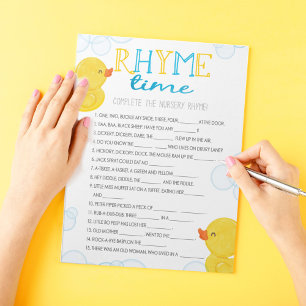 RHYME
time
COMPLETE THE NURSERY RHYME!
1. ONE, TWO, BUCKLE MY SHOE; THREE, FOUR, AT THE DOOR.
2. BAA, BAA, BLACK SHEEP, HAVE YOU ANY
3. DICKORY, DICKORY, DARE, THE FLEW UP IN THE AIR.
4. DO YOU KNOW THE WHO LIVES ON DRURY LANE?
5. HICKORY, DICKORY, DOCK, THE MOUSE RAN UP THE
6. JACK SPRAT COULD EAT NO
7. A-TISKET, A-TASKET, A GREEN AND YELLOW
8. HEY DIDDLE, DIDDLE, THE AND THE FIDDLE.
9. LITTLE MISS MUFFET SAT ON A TUFFET, EATING HER
AND
10. PETER PIPER PICKED A PECK OF
11. RUB-A-DUB-DUB, THREE IN A
12. LITTLE BO PEEP HAS LOST HER
13. OLD MOTHER WENT TO THE
14. ROCK-A-BYE BABY ON THE
15. THERE WAS AN OLD WOMAN, WHO LIVED IN A